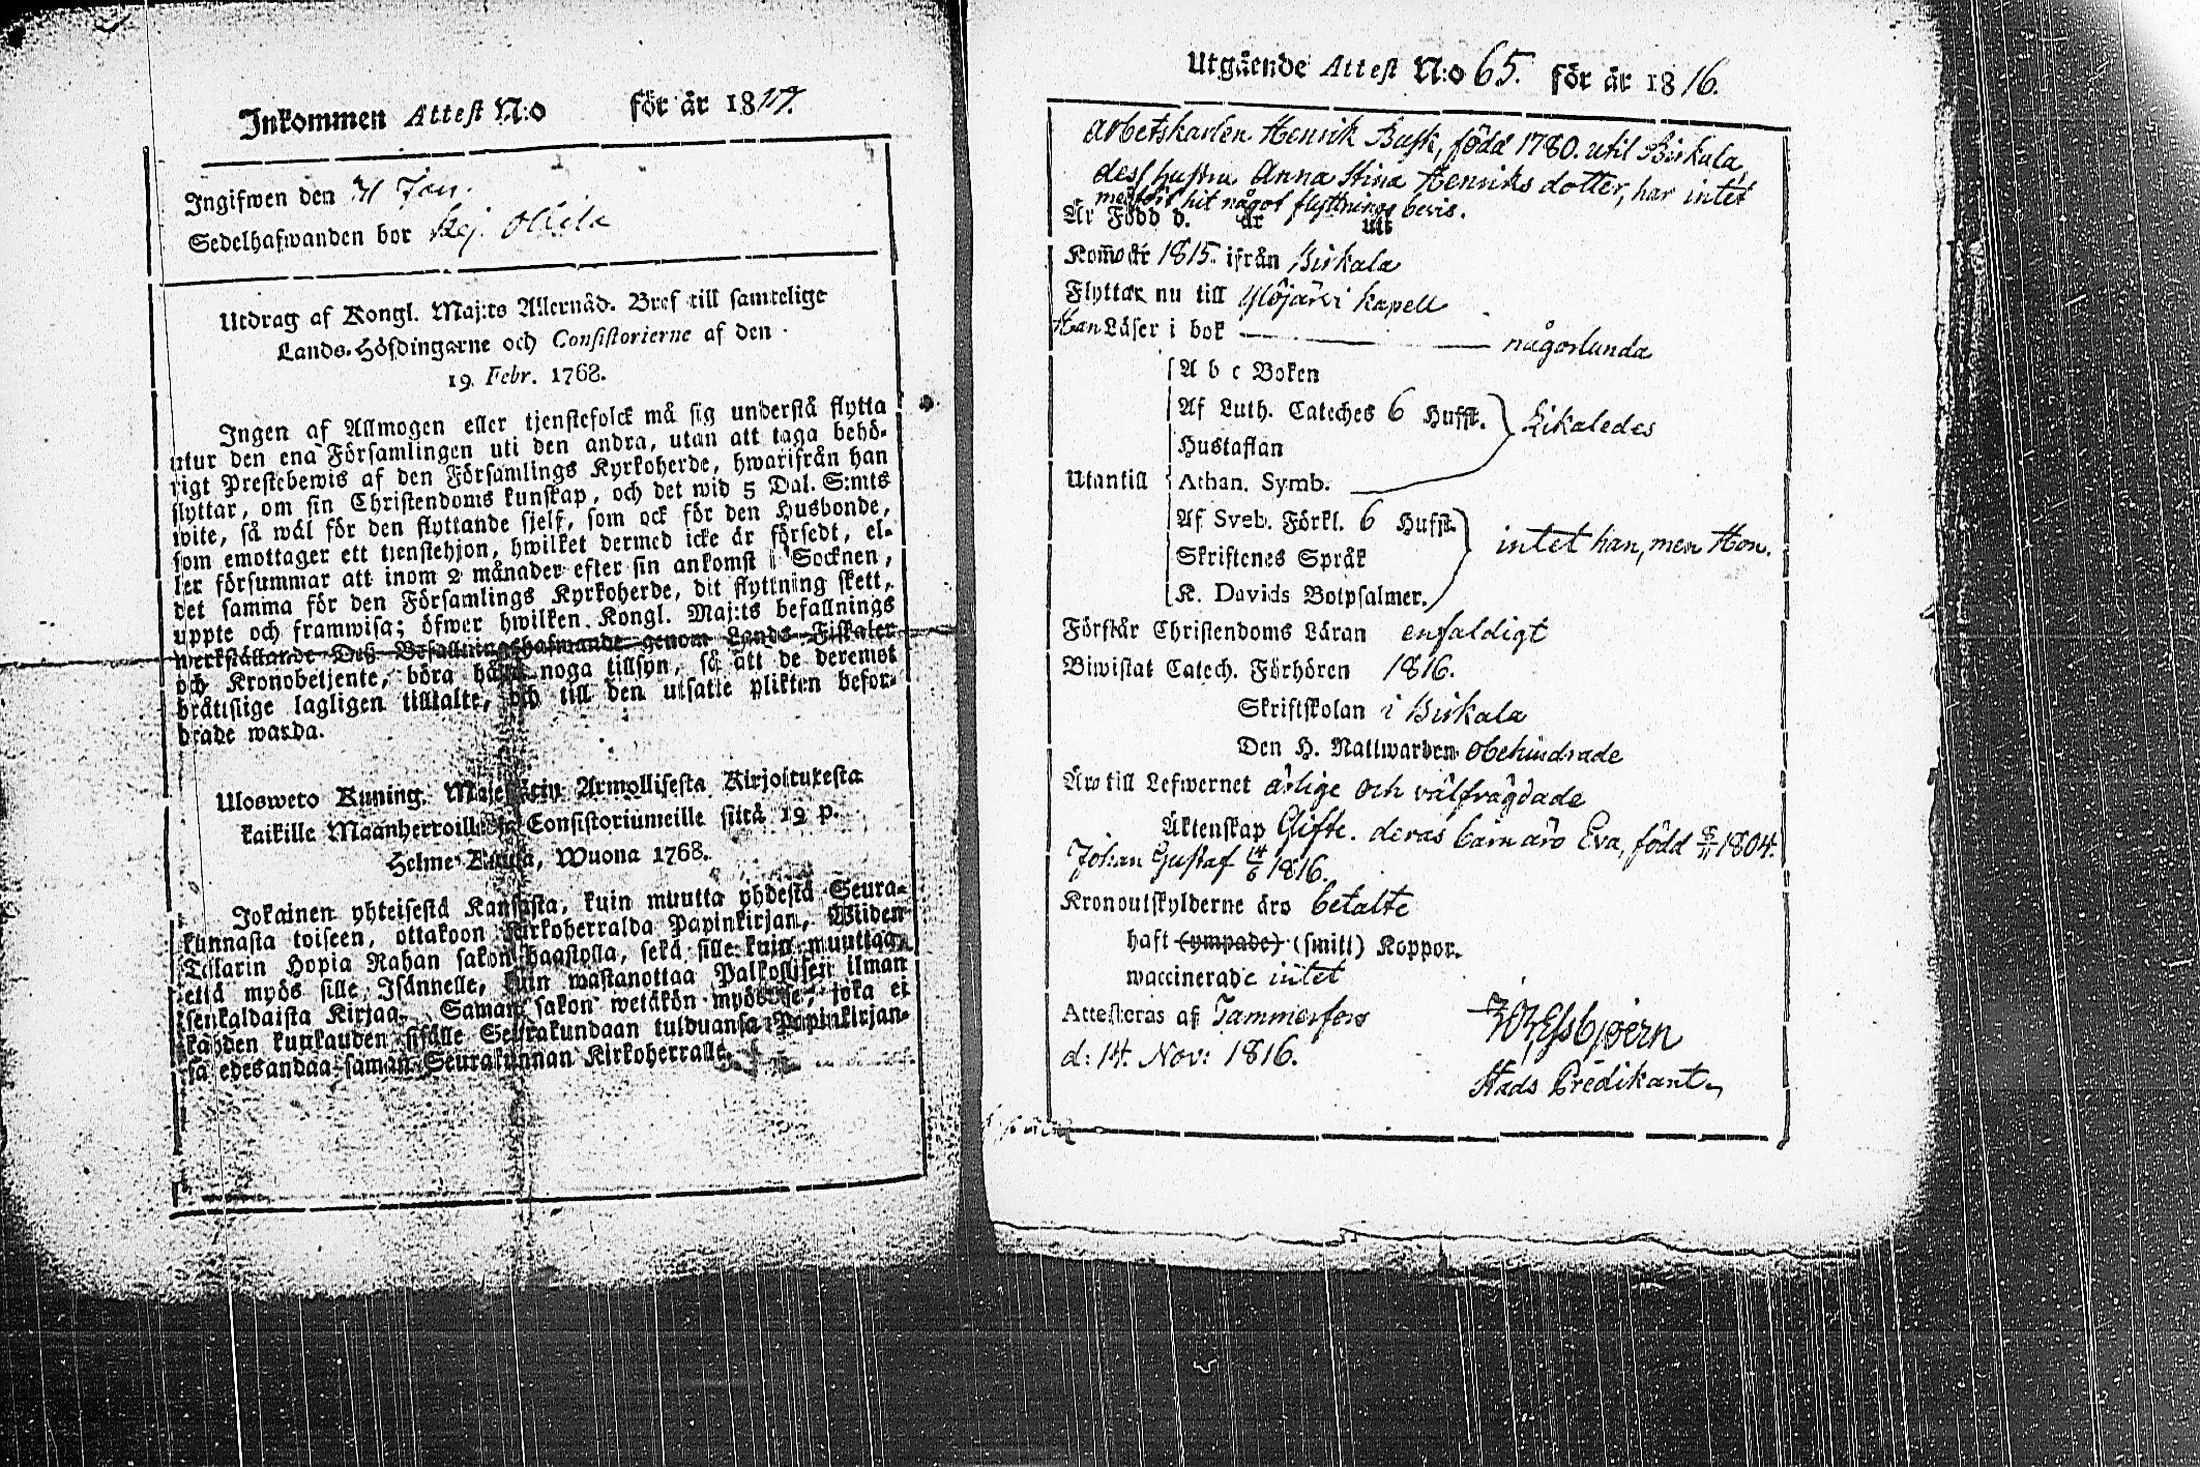 Inkommen Attest N:o för år 1817.
Ingifwen den 31 Jan.
Sedelhafwanden bor
Utdrag af Kongl. Maj:ts Allernåd. Bref till samtelige
Lands-Höfdingarne och Consistorierne af den
19. Febr. 1768.
Ingen af Allmogen eller tjenstefolck må sig understå flytta
utur den ena Församlingen uti den andra, utan att taga behö-
rigt Prestebewis af den Församlings Kyrkoherde, hwarifrån han
flyttar, om sin Christendoms kunskap, och det wid 5 Dal. S:mts
wite, så wäl för den flyttande sjelf, som ock för den Husbonde,
som emottager ett tjenstehjon, hwilket dermed icke är försedt, el-
ler försummar att inom 2 månader efter sin ankomst i Socknen,
det samma för den Församlings Kyrkoherde, dit flyttning skett,
uppte och framwisa; öfwer hwilken Kongl. Maj:ts befallnings
werkställande Dess Befallningshafwande genom Lands Fiskaler
och Kronobetjente, böra hafwa noga tillsyn, så att de deremot
bråttslige lagligen tilltalte, och till den utsatte plikten befor-
drade warda.
Ulosweto Kuning. Majestätin Armollisesta Kirjoituxesta
kaikille Maanherroille ja Consistoriumeille siitä 19 p.
Helme Kuusa, Wuona 1768.
Jokainen yhteisestä Kansasta, kuin muutta yhdestä Seura-
kunnasta toiseen, ottakoon Kirkoherralda Papinkirjan, Wiiden
Talarin Hopia Rahan sakon haastolla, sekä sille kuin muuttaa,
että myös sille Isännelle, kuin wastanottaa Palkollisen ilman
senkaldaista Kirjaa. Saman sakon wetäkön myös se, joka ei
kahden kuukauden sisälle Seurakundaan tulduansa Papinkirjan-
sa edesandaa saman Seurakunnan Kirkoherralle.
Utgående Attest N:o 65. för år 1816.
Arbetskarlen Henrik Bask, född 1780. uti Birkala,
dess hustru Anna Stina Henriksdotter, har intet
medfört hit något flyttnings bevis.
Är Född d. år uti
Kom̄o år 1815. ifrån Birkala
Flyttar nu till Ylöjärvi kapell
Han Läser i bok någorlunda
A b c Boken
Af Luth. Cateches 6 Hufst. Likaledes
Hustaflan
Utantill Athan. Symb.
Af Sveb. Förkl. 6 Hufst.
Skriftenes Språk intet han, men Hon.
K. Davids Botpsalmer.
Förstår Christendoms Läran enfaldigt
Biwistat Catech. Förhören 1816.
Skriftskolan i Birkala
Den H. Nattwarden obehindrade
Äro till Lefwernet ärlige och välfrägdade
Äktenskap Gifte. deras barn äro Eva, född 8/11 1804.
Johan Gustaf 14/6 1816.
Kronoutskylderne äro betalte
haft (ympade) (smitt) Koppor.
waccinerade intet
Attesteras af Tammerfors
d: 14. Nov: 1816. Essbjoern
Stads Predikant